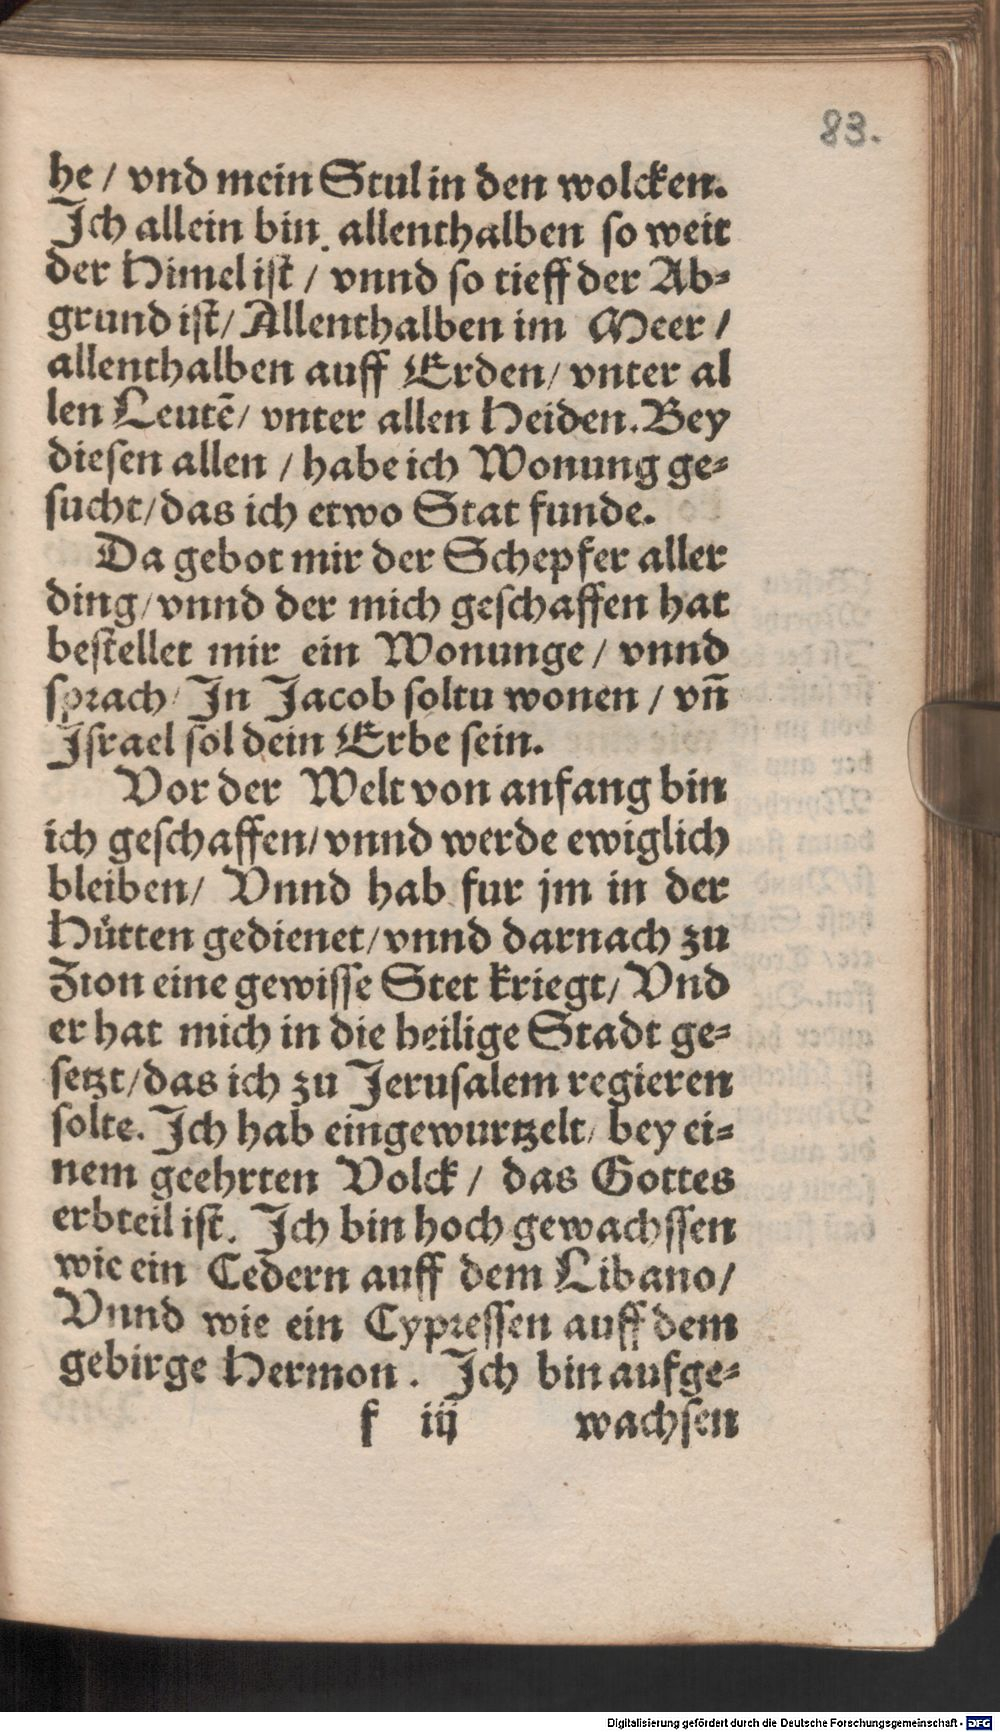 83.
he / vnd mein Stul in den wolcken.
Ich allein bin allenthalben so weit
der Himel ist / vnnd so tieff der Ab⸗
grund ist / Allenthalben im Meer /
allenthalben auff Erden / vnter al
len Leutē / vnter allen Heiden. Bey
diesen allen / habe ich Wonung ge⸗
sucht / das ich etwo Stat funde.
Da gebot mir der Schepfer aller
ding / vnnd der mich geschaffen hat
bestellet mir ein Wonunge / vnnd
sprach / In Jacob soltu wonen / vn̄
Israel sol dein Erbe sein.
Vor der Welt von anfang bin
ich geschaffen / vnnd werde ewiglich
bleiben / Vnnd hab fur jm in der
Hütten gedienet / vnnd darnach zu
Zion eine gewisse Stet kriegt / Vnd
er hat mich in die heilige Stadt ge⸗
setzt / das ich zu Jerusalem regieren
solte. Ich hab eingewurtzelt / bey ei⸗
nem geehrten Volck / das Gottes
erbteil ist. Ich bin hoch gewachssen
wie ein Cedern auff dem Libano /
Vnnd wie ein Cypressen auff dem
gebirge Hermon. Ich bin aufge⸗
f iij wachsen
Digitalisierung gefördert durch die Deutsche Forschungsgemeinschaft - DFG